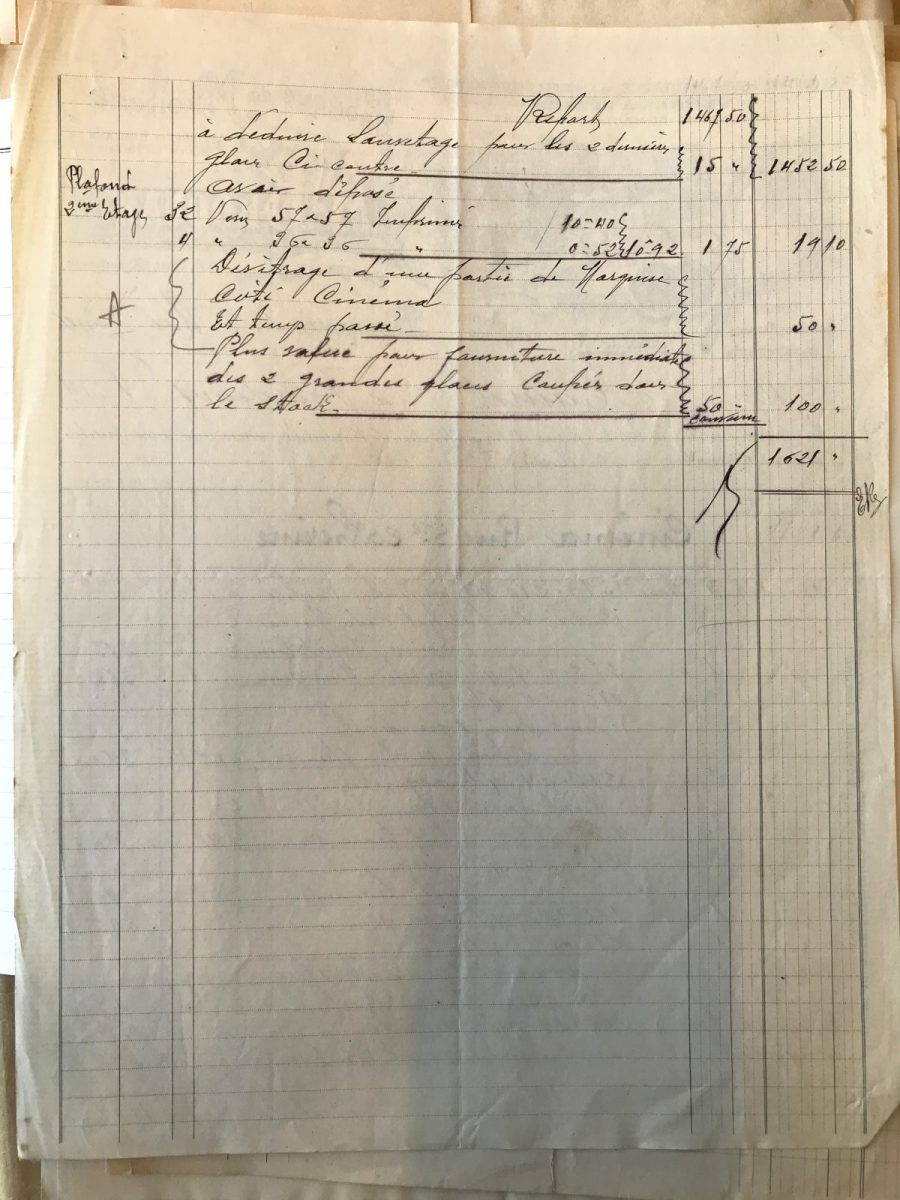 Report 1467 50
à déduire Sauvetage pour les 2 derniers
glaces Ci contre 15 " 1452 50
avoir déposé
Plafond
2ème Etage 32 Verre 57 x 57 Imprimé 10=40
4 " 36 x 36 " 0=52 10-92 1 75 19 10
d'une partie de Marquise
Côté Cinéma
A Et temps passé 50 "
Plus value pour fourniture immédiate
des 2 grandes glaces Coupés dans
le stock 50 100 "
1621 "